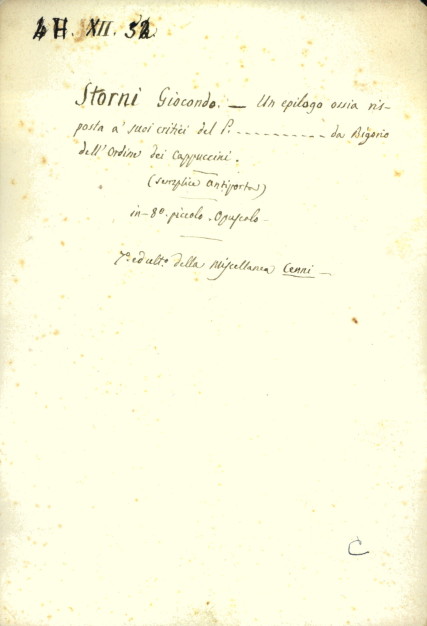 LH. XII. 52
Storni Giocondo. — Un epilogo ossia ris-
posta a' suoi critici del P. ----------- da Bigorio
dell' Ordine dei Cappuccini.
(semplice antiporta)
in-8º. piccolo. Opuscolo-
7º. ed ult.º della Miscellanea Cenni —
C